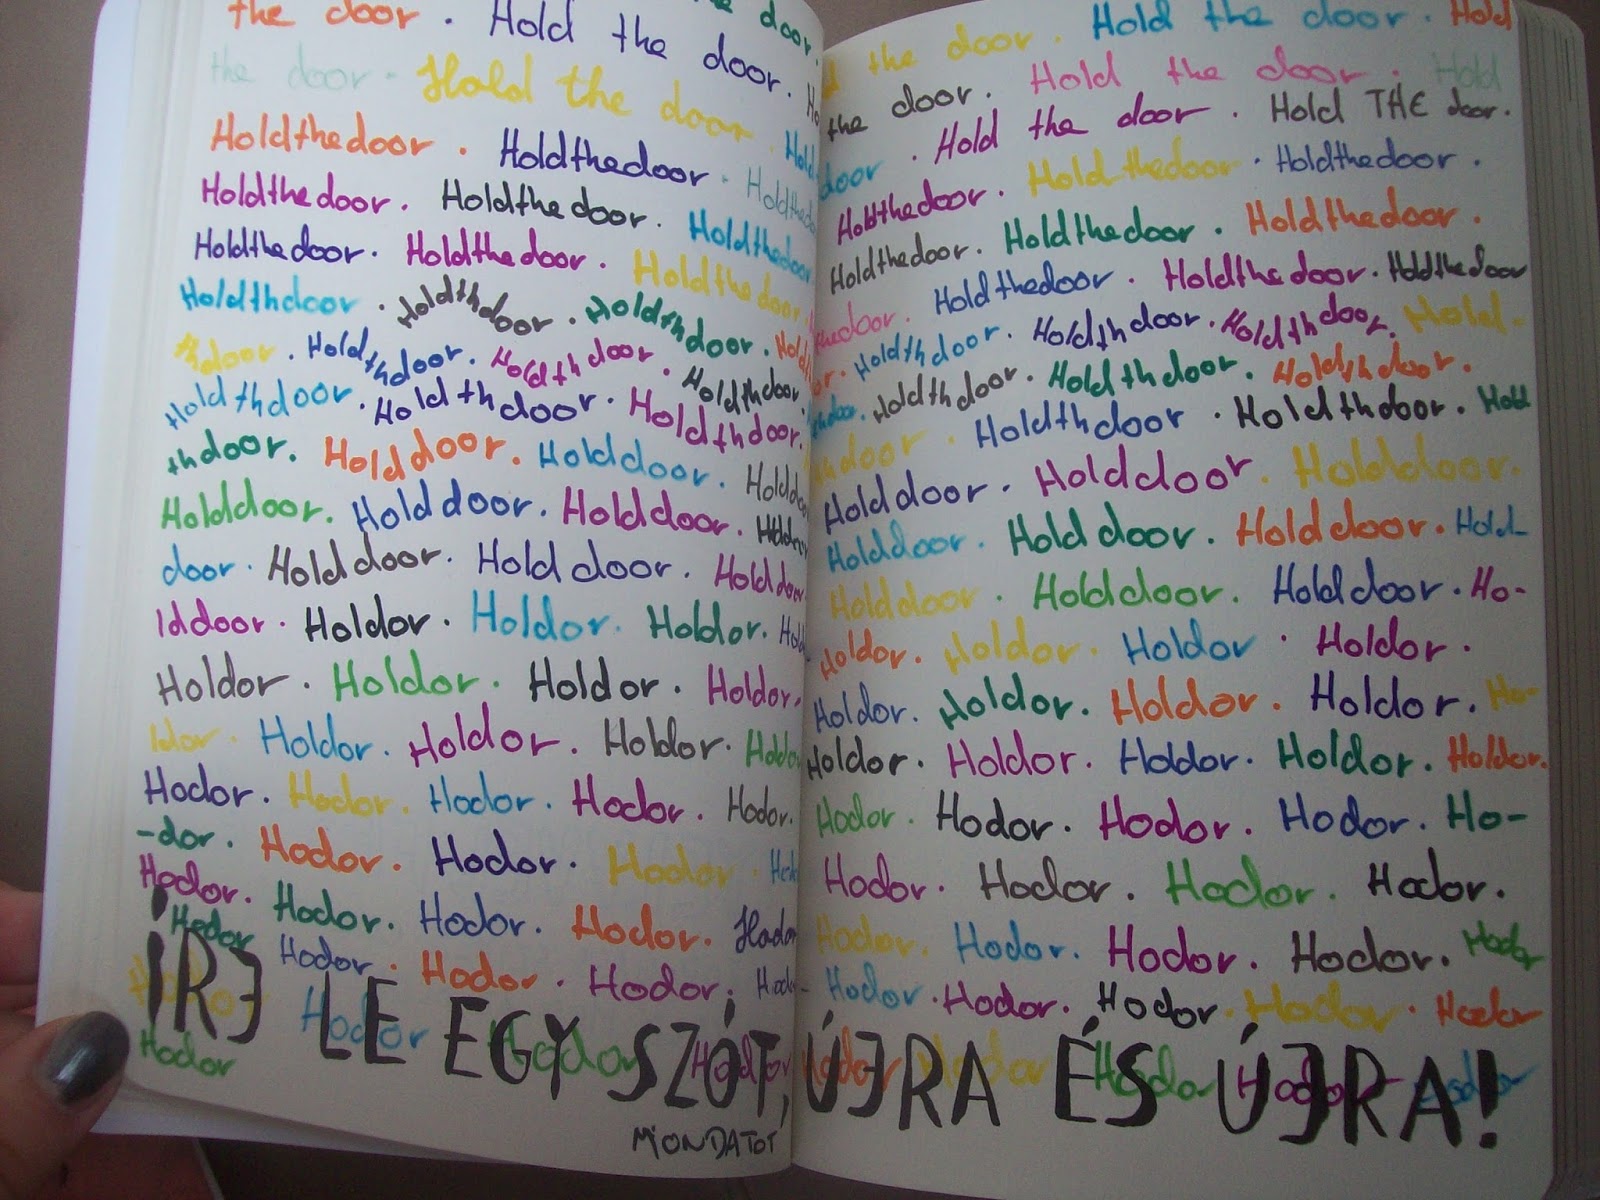 the door. Hold the door.
the door. Hold the door.
Holdthedoor. Holdthedoor.
Holdthedoor. Holdthedoor. Holdthedoor
Holdthedoor. Holdthedoor. Holdthedoor.
Holdthdoor. Holdthdoor. Holdthdoor.
thdoor. Holdthdoor. Holdthdoor. Holdthdoor.
Holdthdoor. Holdthdoor. Holdthdoor.
thdoor. Holddoor. Holddoor.
Holddoor. Holddoor. Holddoor.
door. Holddoor. Holddoor. Holddoor.
lddoor. Holdor. Holdor. Holdor.
Holdor. Holdor. Holdor. Holdor.
ldor. Holdor. Holdor. Holdor. Holdor
Hodor. Hodor. Hodor. Hodor. Hodor.
-dor. Hodor. Hodor. Hodor.
Hodor. Hodor. Hodor. Hodor. Hodor
Hodor Hodor. Hodor. Hodor.
Hodor Hodor Hodor Hodor
the door. Hold the door. Hold
the door. Hold the door. Hold
door. Hold the door. Hold THE door.
Holdthedoor. Holdthedoor. Holdthedoor.
Holdthedoor. Holdthedoor. Holdthedoor.
thedoor. Holdthedoor. Holdthedoor. Holdthedoor
Holdthdoor. Holdthdoor. Holdthdoor. Hold-
Holdthdoor. Holdthdoor. Holdthdoor.
thdoor. Holdthdoor. Holdthdoor. Hold
Holddoor. Holddoor. Holddoor.
Holddoor. Holddoor. Holddoor. Hold-
Holddoor. Holddoor. Holddoor. Ho-
Holdor. Holdor. Holdor. Holdor.
Holdor. Holdor. Holdor. Holdor. Ho-
Holdor. Holdor. Holdor. Holdor. Holdor.
Hodor. Hodor. Hodor. Hodor. Ho-
Hodor. Hodor. Hodor. Hodor.
Hodor. Hodor. Hodor. Hodor. Hodor
Hodor. Hodor. Hodor. Hodor. Hodor
Hodor Hodor Hodor Hodor
ÍRJ LE EGY SZÓT, ÚJRA ÉS ÚJRA!
MONDATOT